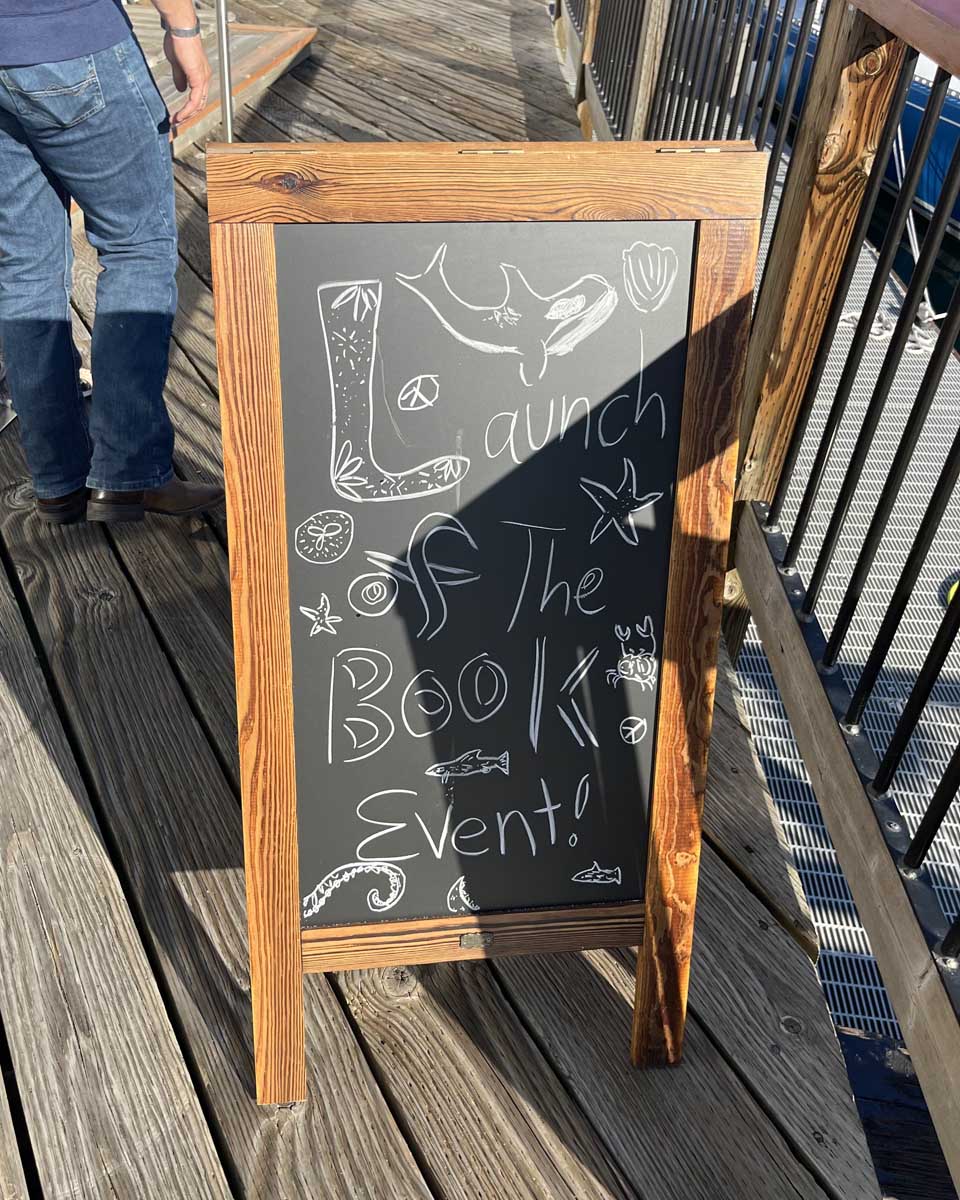 Launch
of The
Book
Event!